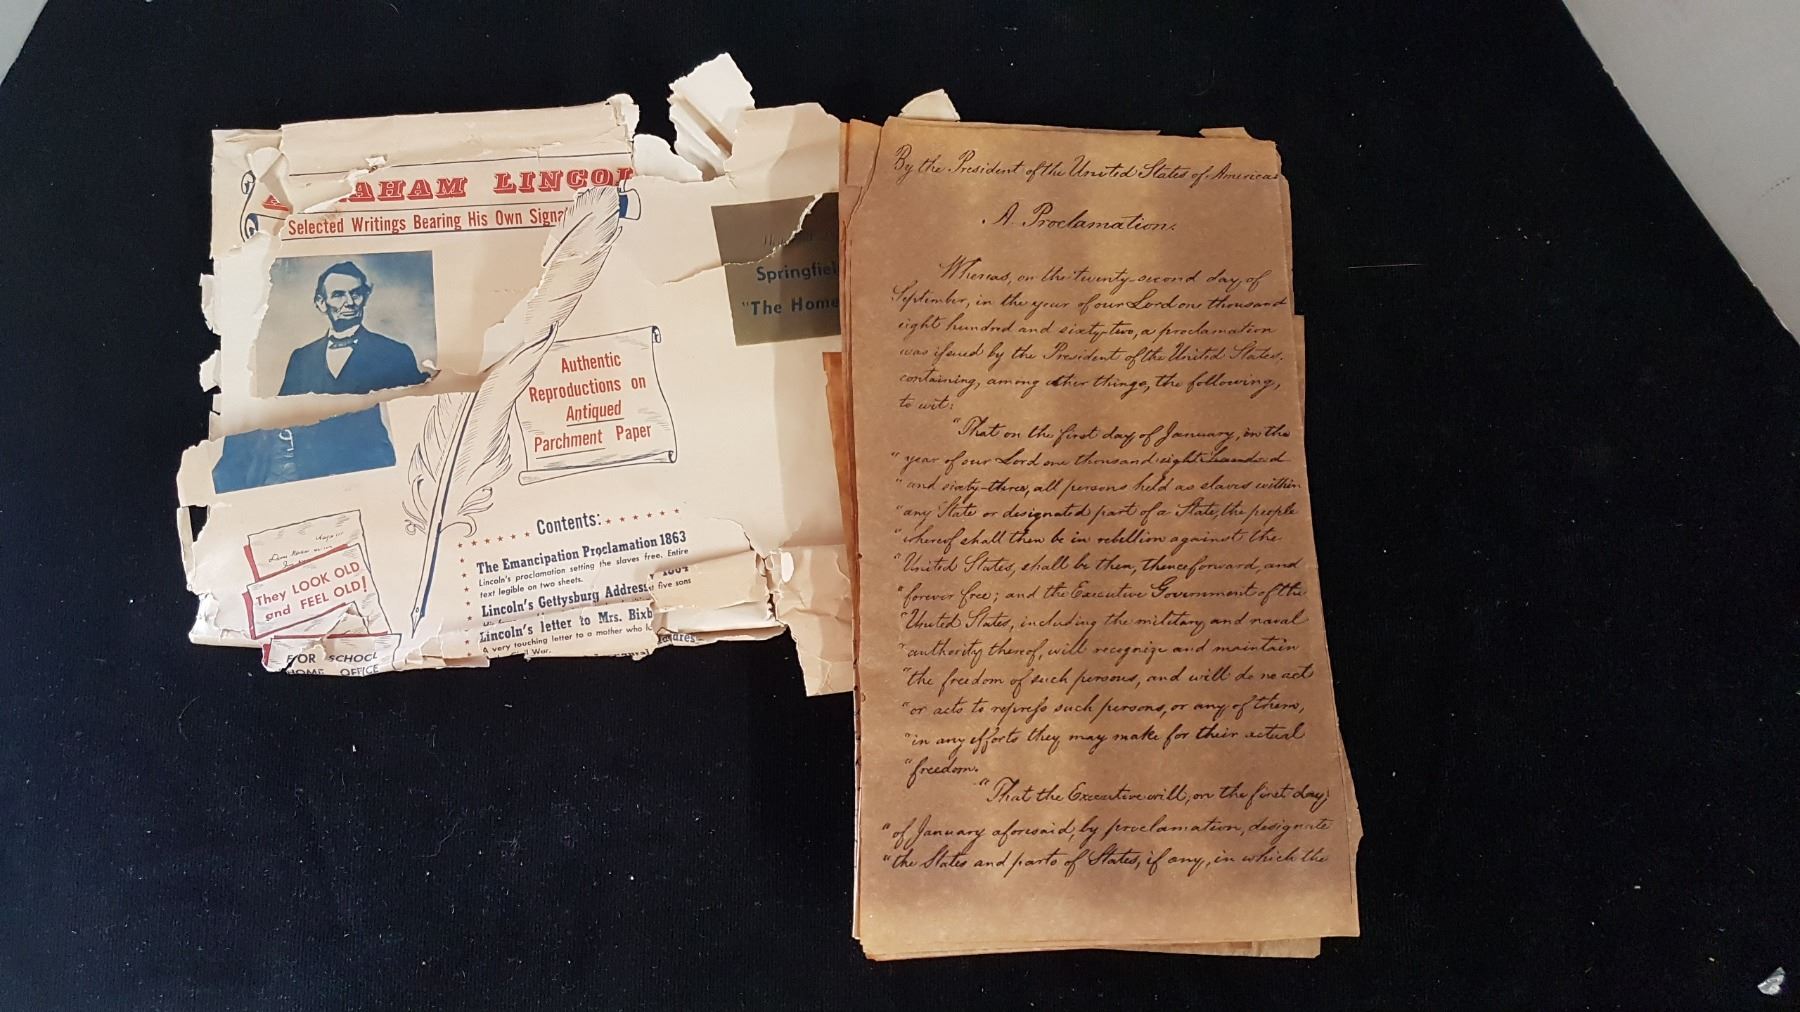 AHAM LINCOL
Selected Writings Bearing His Own Signa
Authentic
Reproductions on
Antiqued
Parchment Paper
Springfiel
"The Home
They LOOK OLD
and FEEL OLD!
FOR SCHOOL
HOME OFFICE
Contents:
The Emancipation Proclamation 1863
Lincoln's proclamation setting the slaves free. Entire
text legible on two sheets.
Lincoln's Gettysburg Address
1864
five sons
Lincoln's letter to Mrs. Bixb
A very touching letter to a mother who lo
il War.
By the President of the United States of America
A Proclamation.
Whereas, on the twenty-second day of
September, in the year of our Lord one thousand
eight hundred and sixty-two, a proclamation
was issued by the President of the United States,
containing, among other things, the following,
to wit:
"That on the first day of January, in the
"year of our Lord one thousand eight hundred
"and sixty-three, all persons held as slaves within
"any State or designated part of a State, the people
"whereof shall then be in rebellion against the
"United States, shall be then, thenceforward, and
"forever free; and the Executive Government of the
"United States, including the military and naval
"authority thereof, will recognize and maintain
"the freedom of such persons, and will do no act
"or acts to repress such persons, or any of them,
"in any efforts they may make for their actual
"freedom.
"That the Executive will, on the first day,
"of January aforesaid, by proclamation, designate
"the States and parts of States, if any, in which the